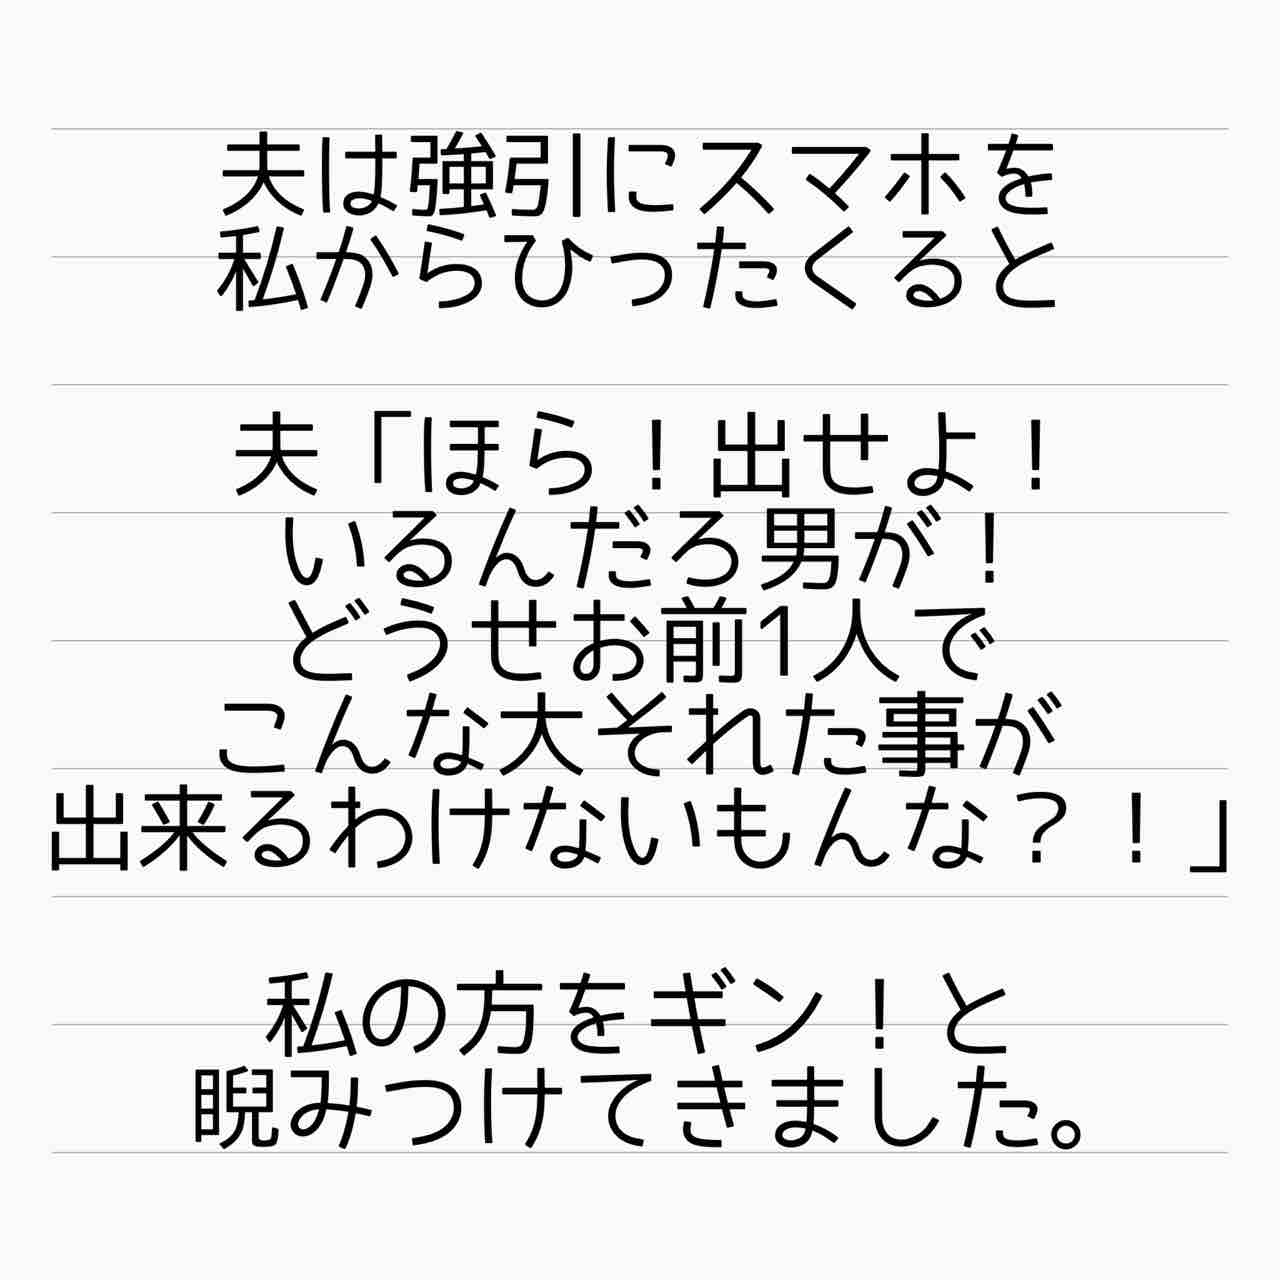 夫は強引にスマホを
私からひったくると
夫「ほら！出せよ！
いるんだろ男が！
どうせお前1人で
こんな大それた事が
出来るわけないもんな？！」
私の方をギン！と
睨みつけてきました。